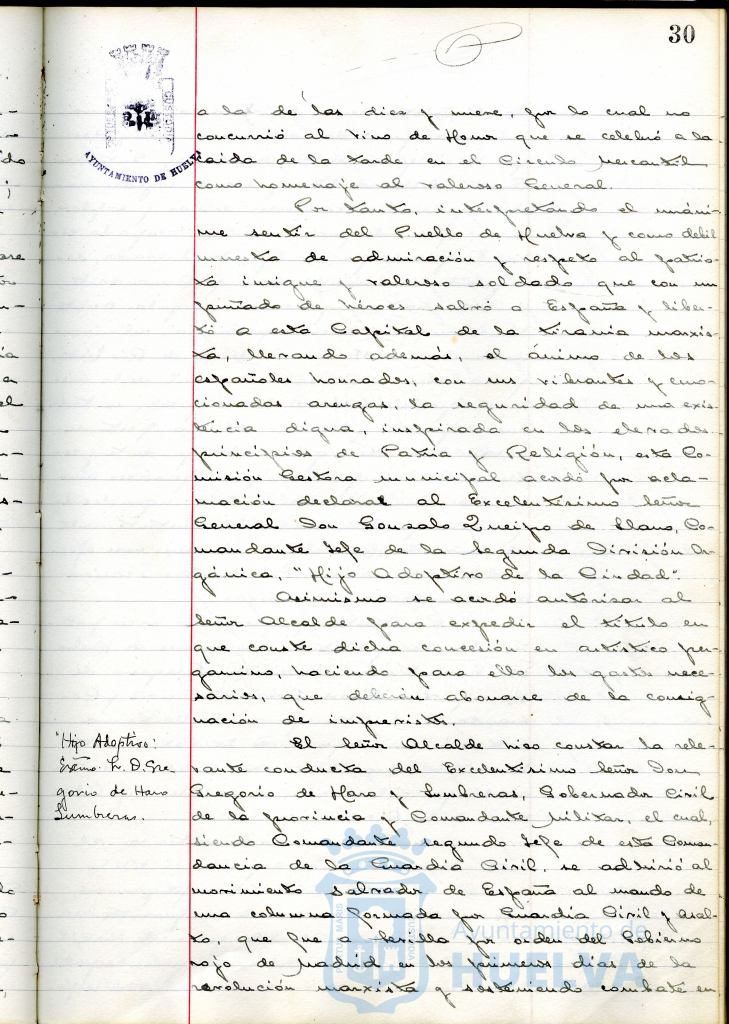 30
AYUNTAMIENTO DE HUELVA
a la de las diez y nueve, por lo cual no
concurrió al Vino de Honor que se celebró a la
caida de la tarde en el Círculo Mercantil
como homenaje al valeroso General.
Por tanto, interpretando el unáni-
me sentir del Pueblo de Huelva y como debil
muestra de admiración y respeto al patrio-
ta insigne y valeroso soldado que con un
puñado de héroes salvó a España y liber-
tó a esta Capital de la tirania marxis-
ta, llevando además, al ánimo de los
españoles honrados, con sus vibrantes y emo-
cionadas arengas, la seguridad de una exis-
tencia digna, inspirada en los elevados
principios de Patria y Religión, esta Co-
misión Gestora municipal acordó por acla-
mación declarar al Excelentísimo Señor
General Don Gonzalo Queipo de Llano, Co-
mandante Jefe de la Segunda División Or-
gánica, "Hijo Adoptivo de la Ciudad".
Asimismo se acordó autorizar al
Señor Alcalde para expedir el título en
que conste dicha concesión en artístico per-
gamino, haciendo para ello los gastos nece-
sarios, que deberán abonarse de la consig-
nación de imprevistos.
"Hijo Adoptivo:
Excmo. Sr. D. Gre-
gorio de Haro
Lumbreras.
El Señor Alcalde hizo constar la rele-
vante conducta del Excelentísimo Señor Don
Gregorio de Haro y Lumbreras, Gobernador Civil
de la provincia y Comandante Militar, el cual,
siendo Comandante segundo Jefe de esta Coman-
dancia de la Guardia Civil, se adhirió al
movimiento salvador de España al mando de
una columna formada por Guardia Civil y Asal-
to, que fue a Sevilla por orden del Gobierno
rojo de Madrid en los primeros dias de la
revolución marxista y sosteniendo combate en
Ayuntamiento de
HUELVA